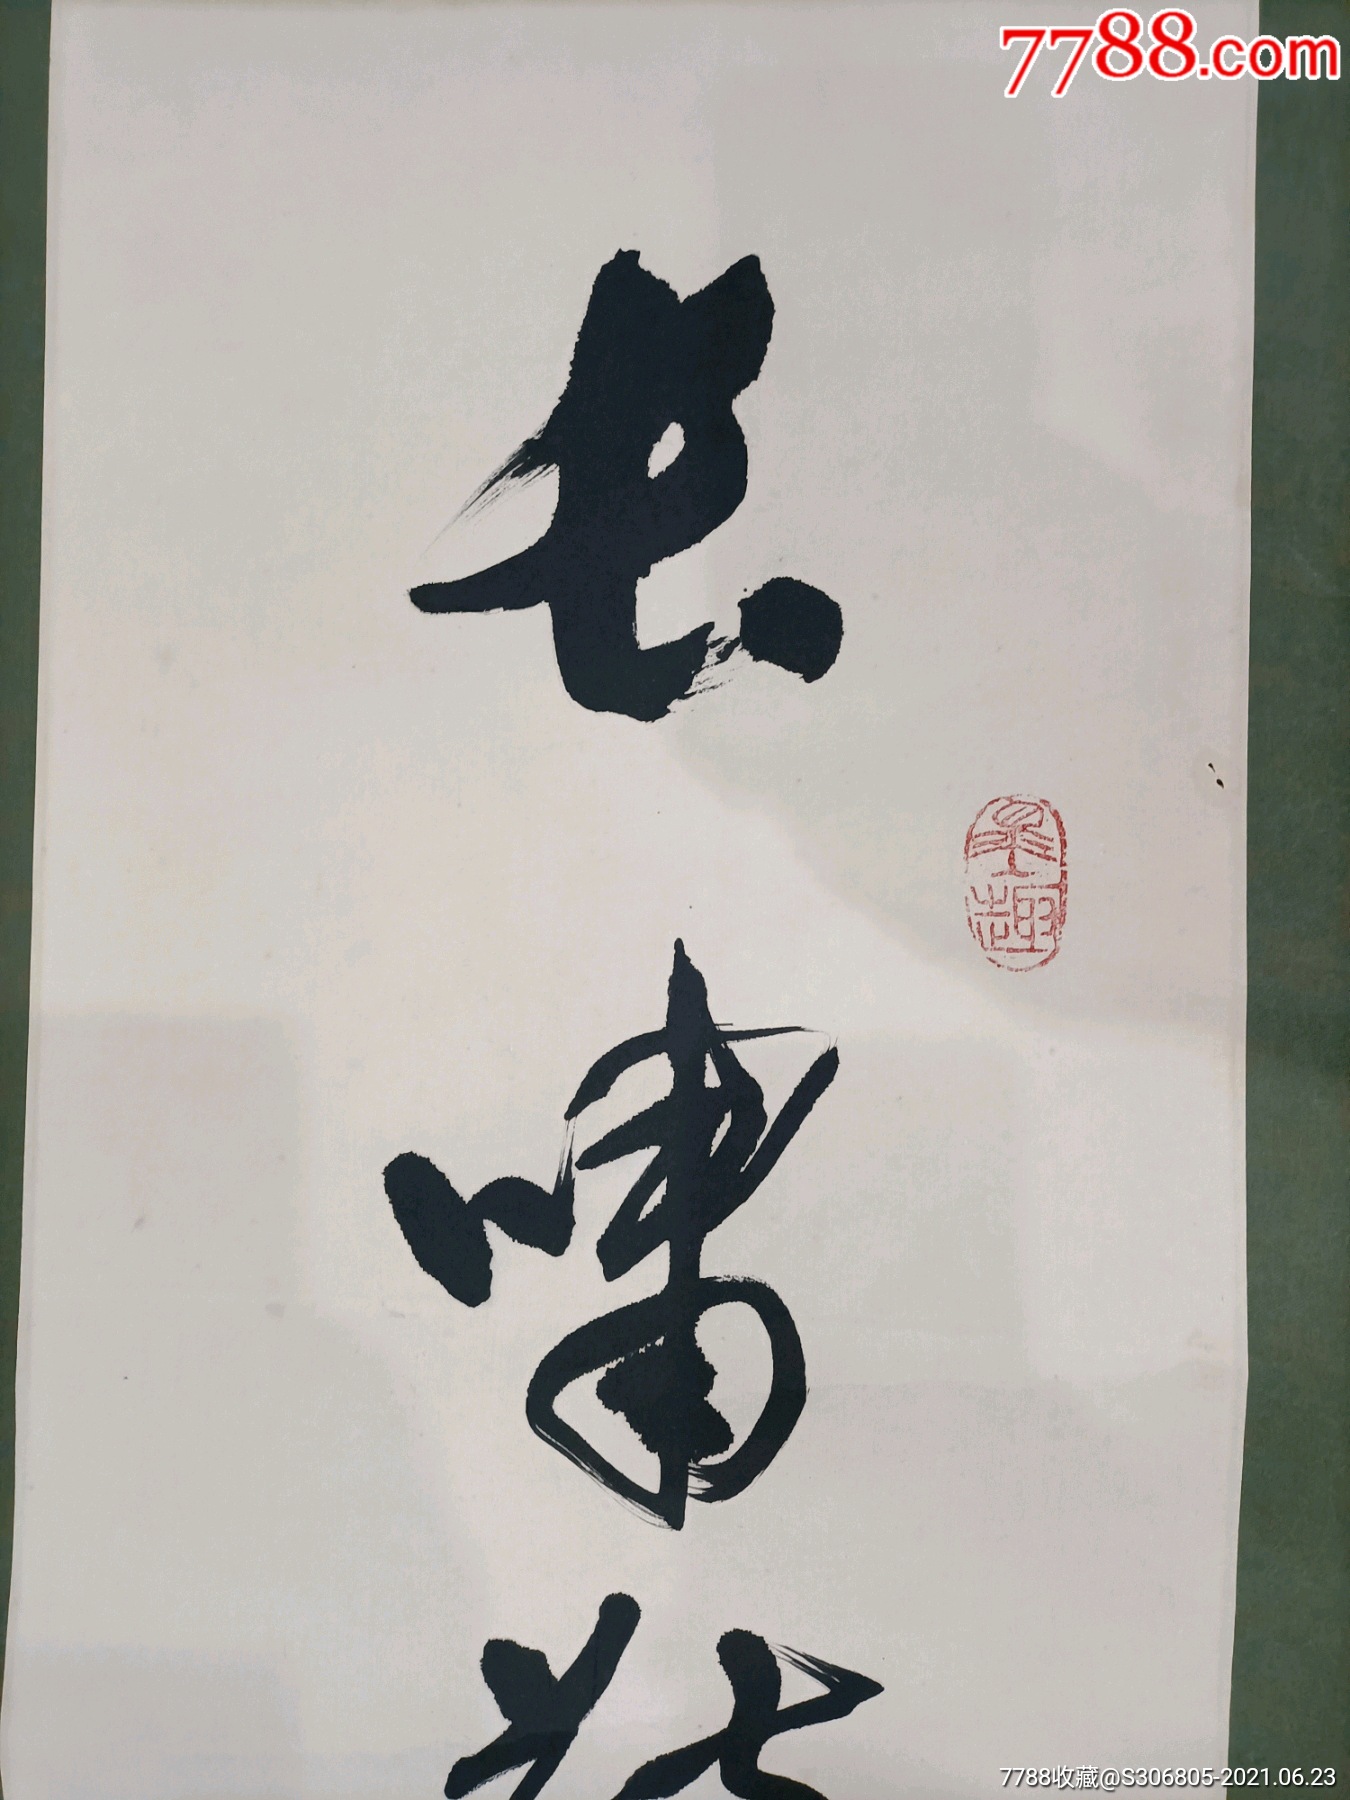 7788.com
长
啸
7788收藏@S306805-2021.06.23